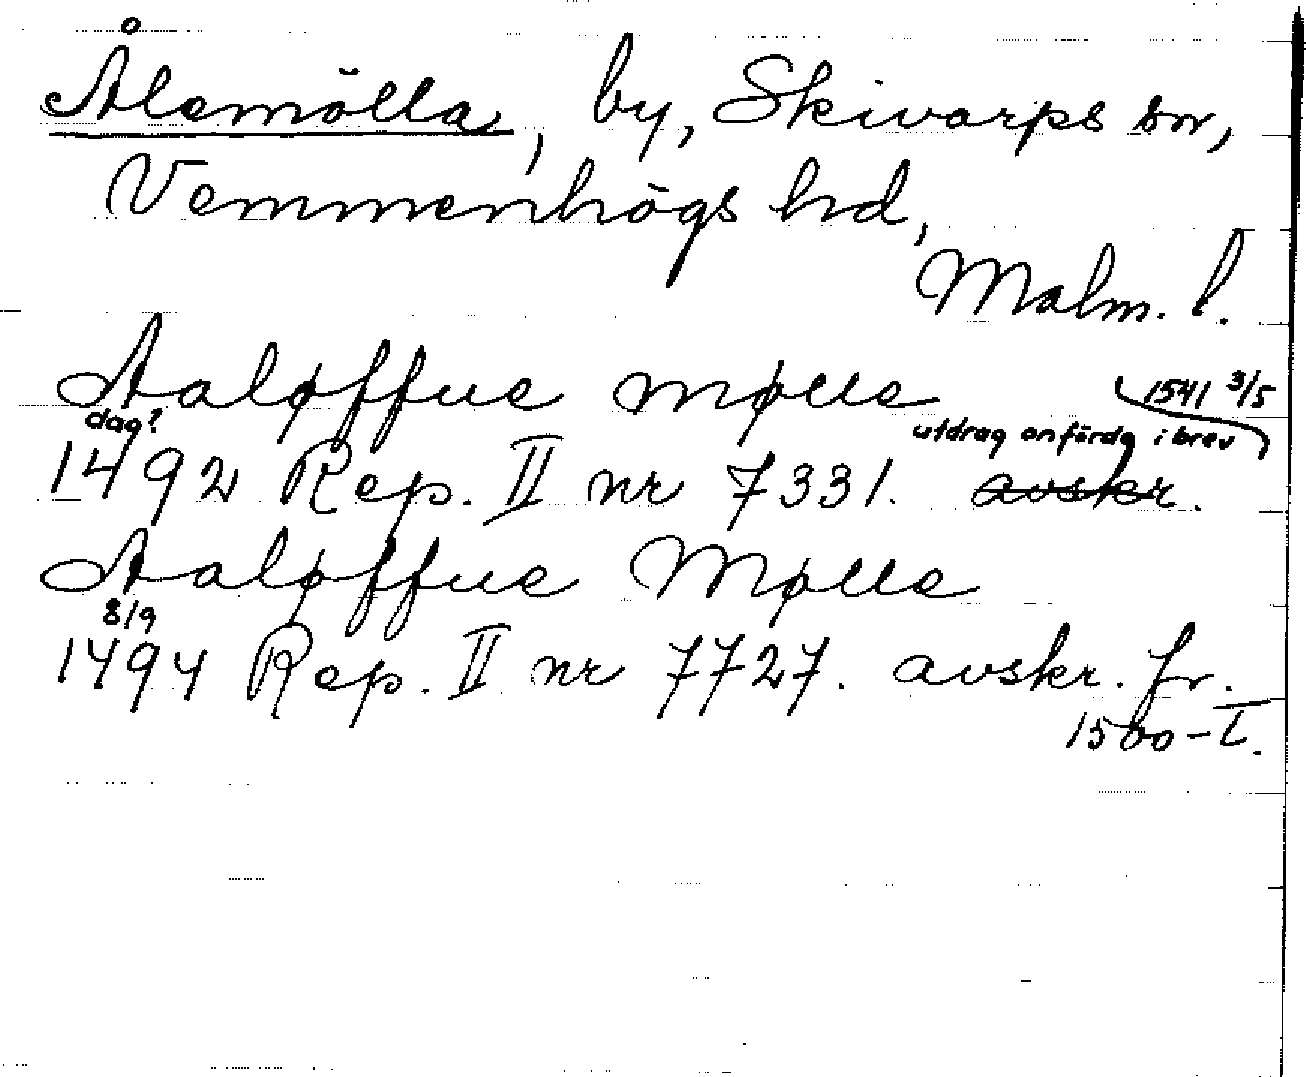 Ålemölla, by, Skivarps sn,
Vemmenhögs hd,
Malm. l.
Aaløffue mølle
1541 3/5
dag? utdrag anfördg i brev
1492 Rep. II nr 7331. avskr.
Aaløffue Mølle
8/9
1494 Rep. II nr 7727. avskr. fr.
1500-t.